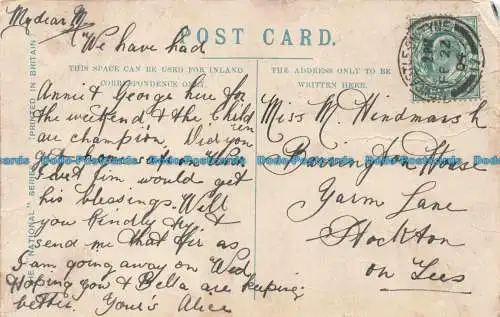 My dear M.
POST CARD.
We have had
THIS SPACE CAN BE USED FOR INLAND
CORRESPONDENCE ONLY.
THE ADDRESS ONLY TO BE
WRITTEN HERE.
Annie & George here for
the weekend & the child
are champion. Did you
his blessings. Will
you kindly try &
send me that Fir as
I am going away on Wed.
Hoping you & Bella are keeping
better. Yours Alice
Miss M. Windmarsh
Barrington House
Yarm Lane
Stockton
on Tees
THE "NATIONAL" SERIES
PRINTED IN BRITAIN
FE 22